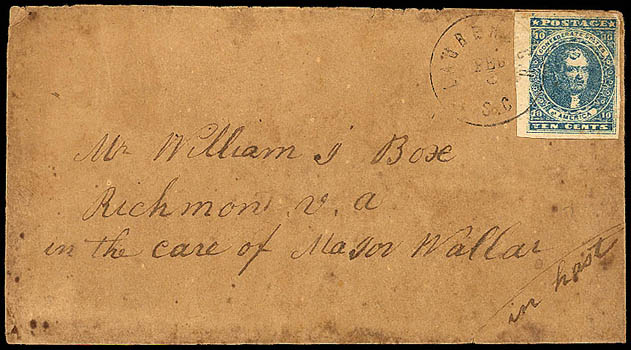 LAURENS
FEB
S.C
POSTAGE
10 CONFEDERATE STATES 10
10 OF AMERICA 10
TEN CENTS
Mr William J Box
Richmon v. a
in the care of Major Wallar
in hast